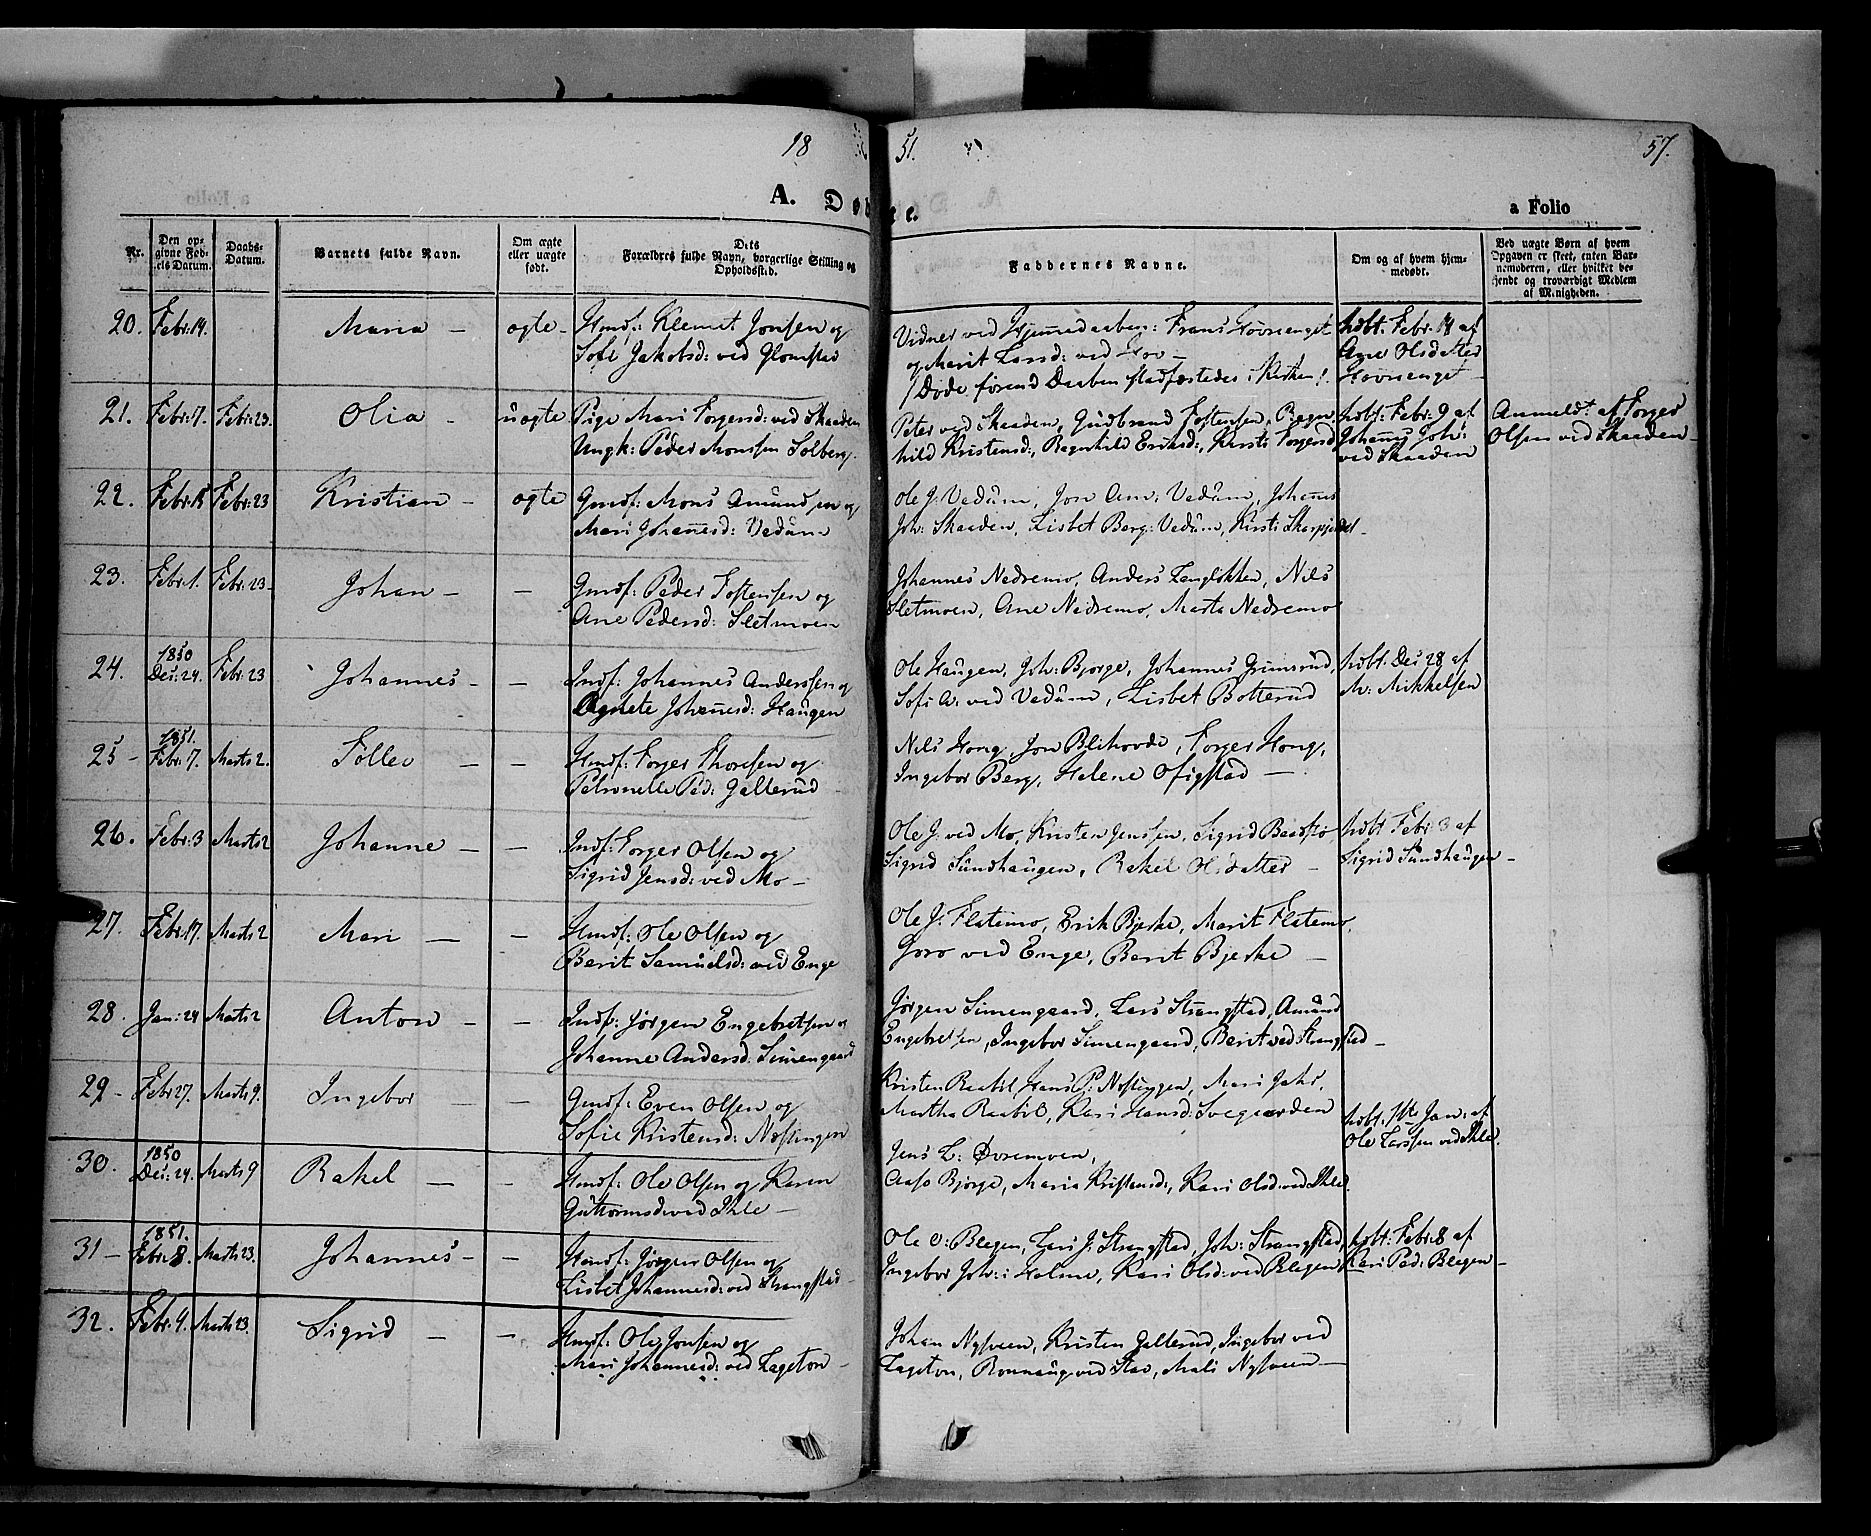 18 51. 57.
A. Døbte. a Folio
Nr. Den opgivne Fødels Datum. Daabs-Datum. Barnets fulde Navn. Om ægte eller uægte født. Dets Forældres fulde Navn, borgerlige Stilling og Opholdssted. Faddernes Navne. Om og af hvem hjemmedøbt. Ved uægte Børn af hvem Opgaven er skeet, enten Barnemoderen, eller hvilket bekjendt og troværdigt Medlem af Menigheden.
20. Febr: 14. Maria – ægte – Hmdf: Klemet Jonsen og
Sofi Jakobsd: ved Glomstad
Vidner ved Hjemmedaaben: Frans Hovsenget
og Marit Larsd: ved Hov –
/Døde førend Daaben stadfæstedes i Kirken/.
hdbt: Febr: 14 af
Ane Olsdatter
Hovsenget
21. Febr: 7. Febr: 23. Olia – uægte Pige Mari Torgersd: ved Skaaden
Ungk: Peder Monssen Solberg.
Peter ved Skaaden, Gudbrand Tostensen, Ragn
hild Kristensd:, Ragnhild Eriksd:, Kirsti Torgersd
hdbt: Febr: 9 af
Johannes Joh:
ved Skaaden
Anmeldt af Torger
Olsen ved Skaaden –
22. Febr: 15 Febr: 23 Kristian – ægte Gmdf: Mons Amundsen og
Mari Johannesd: Vedum
Ole J: Vedum, Jon Am: Vedum, Johannes
Joh: Skaaden, Lisbet Berg: Vedum, Kirsti
23. Febr: 1. Febr: 23 – Johan – – Gmdf: Peder Tostensen og
Ane Pedersd: Sletmoen
Johannes Nedremo, Anders Langløkken, Nils
Sletmoen, Ane Nedremo, Marta Nedremo
24. 1850
Dec: 24. Febr: 23 Johannes – – Indf: Johannes Anderssen og
Agnete Johannesd: Haugen
Ole Haugen, Joh: Bjørge, Johannes Grimsrud,
Sofi A: ved Vedum, Lisbet Botterud
hdbt: Dec 28 af
M: Mikkelsen
25 – 1851.
Febr: 7. Marts 2. Tollev – – Hmdf: Torger Thoresen og
Petronelle Ped: Gallerud
Nils Hong, Jon Blihovde, Torger Hong,
Ingebor Berg, Helene Ofigstad –
26. Febr: 3 Marts 2 Johanne – – Indf: Torger Olsen og
Sigrid Jensd: ved Mo –
Ole J: ved Mo, Kristen Jenssen, Sigrid
Sigrid Sundhaugen, Rakel Olsdatter –
hdbt Febr: 3 af
Sigrid Sundhaugen –
27. Febr: 17. Marts 2 Mari – – Hmdf: Ole Olsen og
Berit Samuelsd: ved Enge
Ole J: Flatemo, Erik Bjerke, Marit Flatemo,
Goro ved Enge, Berit Bjerke –
28. Jan: 24 Marts 2 Anton – – Indf: Jørgen Engebretsen og
Johanne Andersd: Simengaard
Jørgen Simengaard, Lars Strangstad, Amund
Engebretsen, Ingebor Simengaard, Berit ved Strangstad –
29 – Febr 27. Marts 9. Ingebor – – Gmdf: Even Olsen og
Sofie Kristensd: Nostingen
Kristen Raabøl, Hans P: Nostingen, Mari
Martha Raabøl, Kari Hansd: Svegaarden
30. 1850
Dec: 24. Marts 9 Rakel – – Hmdf: Ole Olsen og Karen
Guttormsd: ved Ihle –
Jens L: Øvremoen,
Aase Bjørge, Maria Kristensd:, Kari Olsd: ved Ihle.
hdbt: 1ste Jan: af
Ole Larssen ved Ihle.
31 – 1851.
Febr: 8. Marts 23. Johannes – – Hmdf: Jørgen Olsen og
Lisbet Johannesd: ved Strangstad –
Ole O: Blegen, Lars J: Strangstad, Joh: Strangstad,
Ingebor Joh: i Holme, Kari Olsd: ved Blegen,
hdbt: Febr: 8 af
Kari Ped: Blegen –
32. Febr. 4. Marts 23. Sigrid – – Hmdf: Ole Jonsen og
Mari Johannesd: ved Lageton –
Johan Nysveen, Kristen Gallerud, Ingebor ved
Lageton, Ronnaug ved Stav, Mali Nysveen –